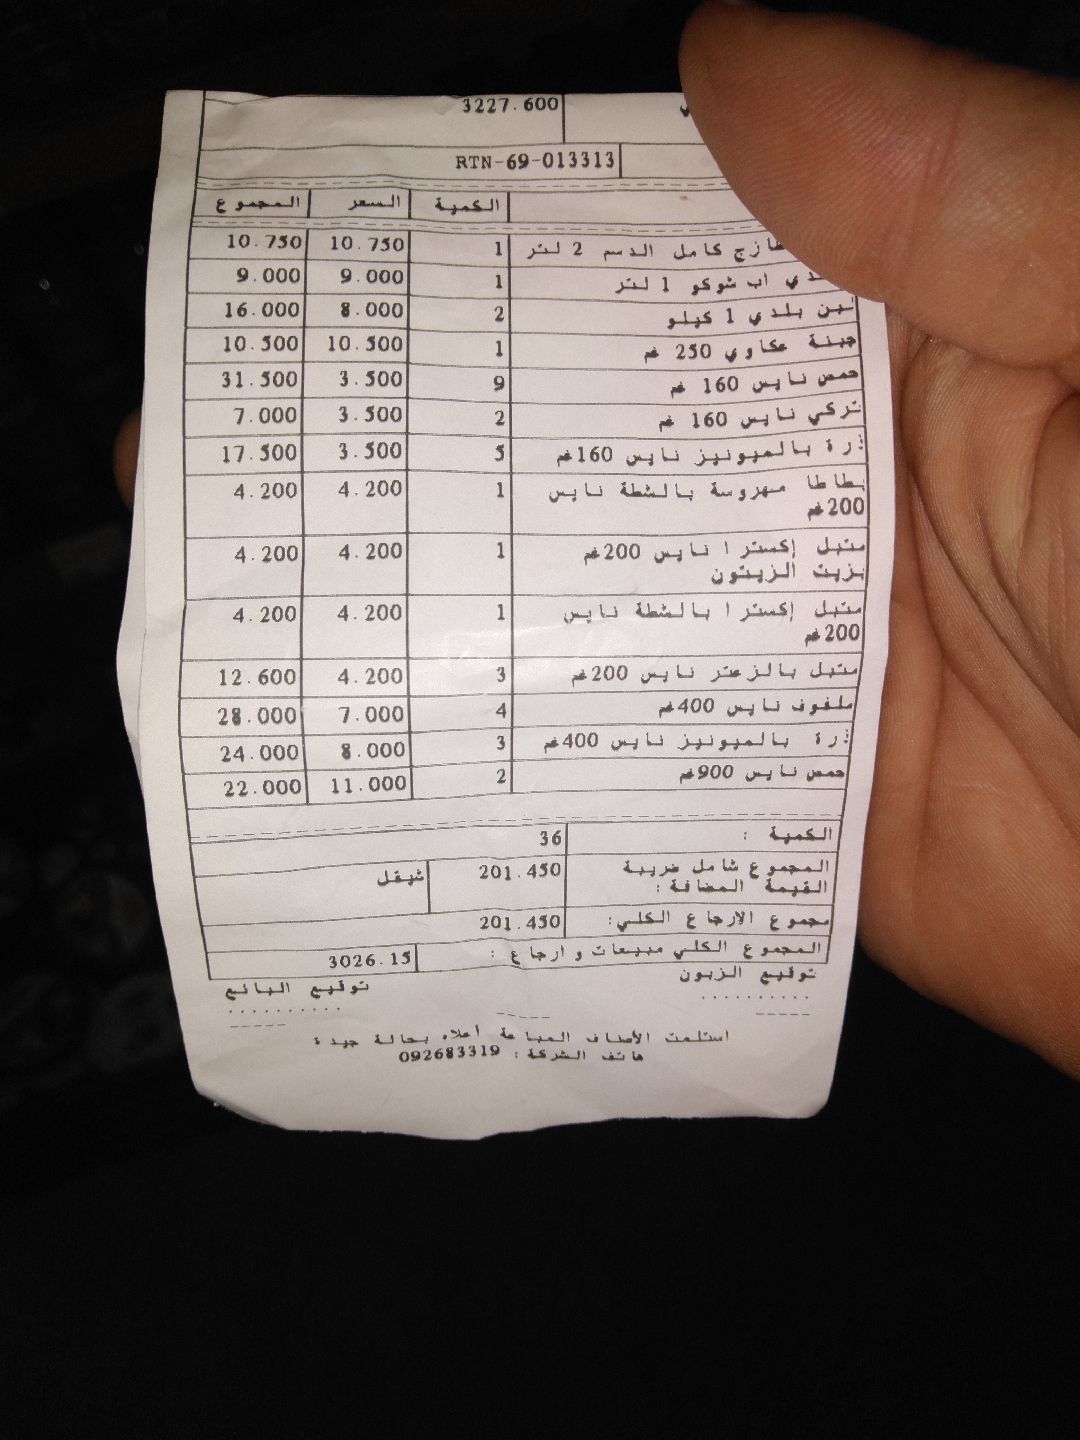 3227.600
RTN-69-013313
الكمية السعر المجموع
طازج كامل الدسم 2 لتر 1 10.750 10.750
اب شوكو 1 لتر 1 9.000 9.000
لبن بلدي 1 كيلو 2 8.000 16.000
جبنة عكاوي 250 غم 1 10.500 10.500
حمص نايس 160 غم 9 3.500 31.500
تركي نايس 160 غم 2 3.500 7.000
ذرة بالميونيز نايس 160غم 5 3.500 17.500
بطاطا مهروسة بالشطة نايس 1 4.200 4.200
200غم
متبل إكسترا نايس 200غم 1 4.200 4.200
بزيت الزيتون
متبل إكسترا بالشطة نايس 1 4.200 4.200
200غم
متبل بالزعتر نايس 200غم 3 4.200 12.600
ملفوف نايس 400غم 4 7.000 28.000
ذرة بالميونيز نايس 400غم 3 8.000 24.000
حمص نايس 900غم 2 11.000 22.000
الكمية : 36
المجموع شامل ضريبة 201.450 شيقل
القيمة المضافة :
مجموع الارجاع الكلي: 201.450
المجموع الكلي مبيعات و ارجاع : 3026.15
توقيع الزبون توقيع البائع
.......... ..........
استلمت الأصناف المباعة أعلاه بحالة جيدة
هاتف الشركة : 092683319